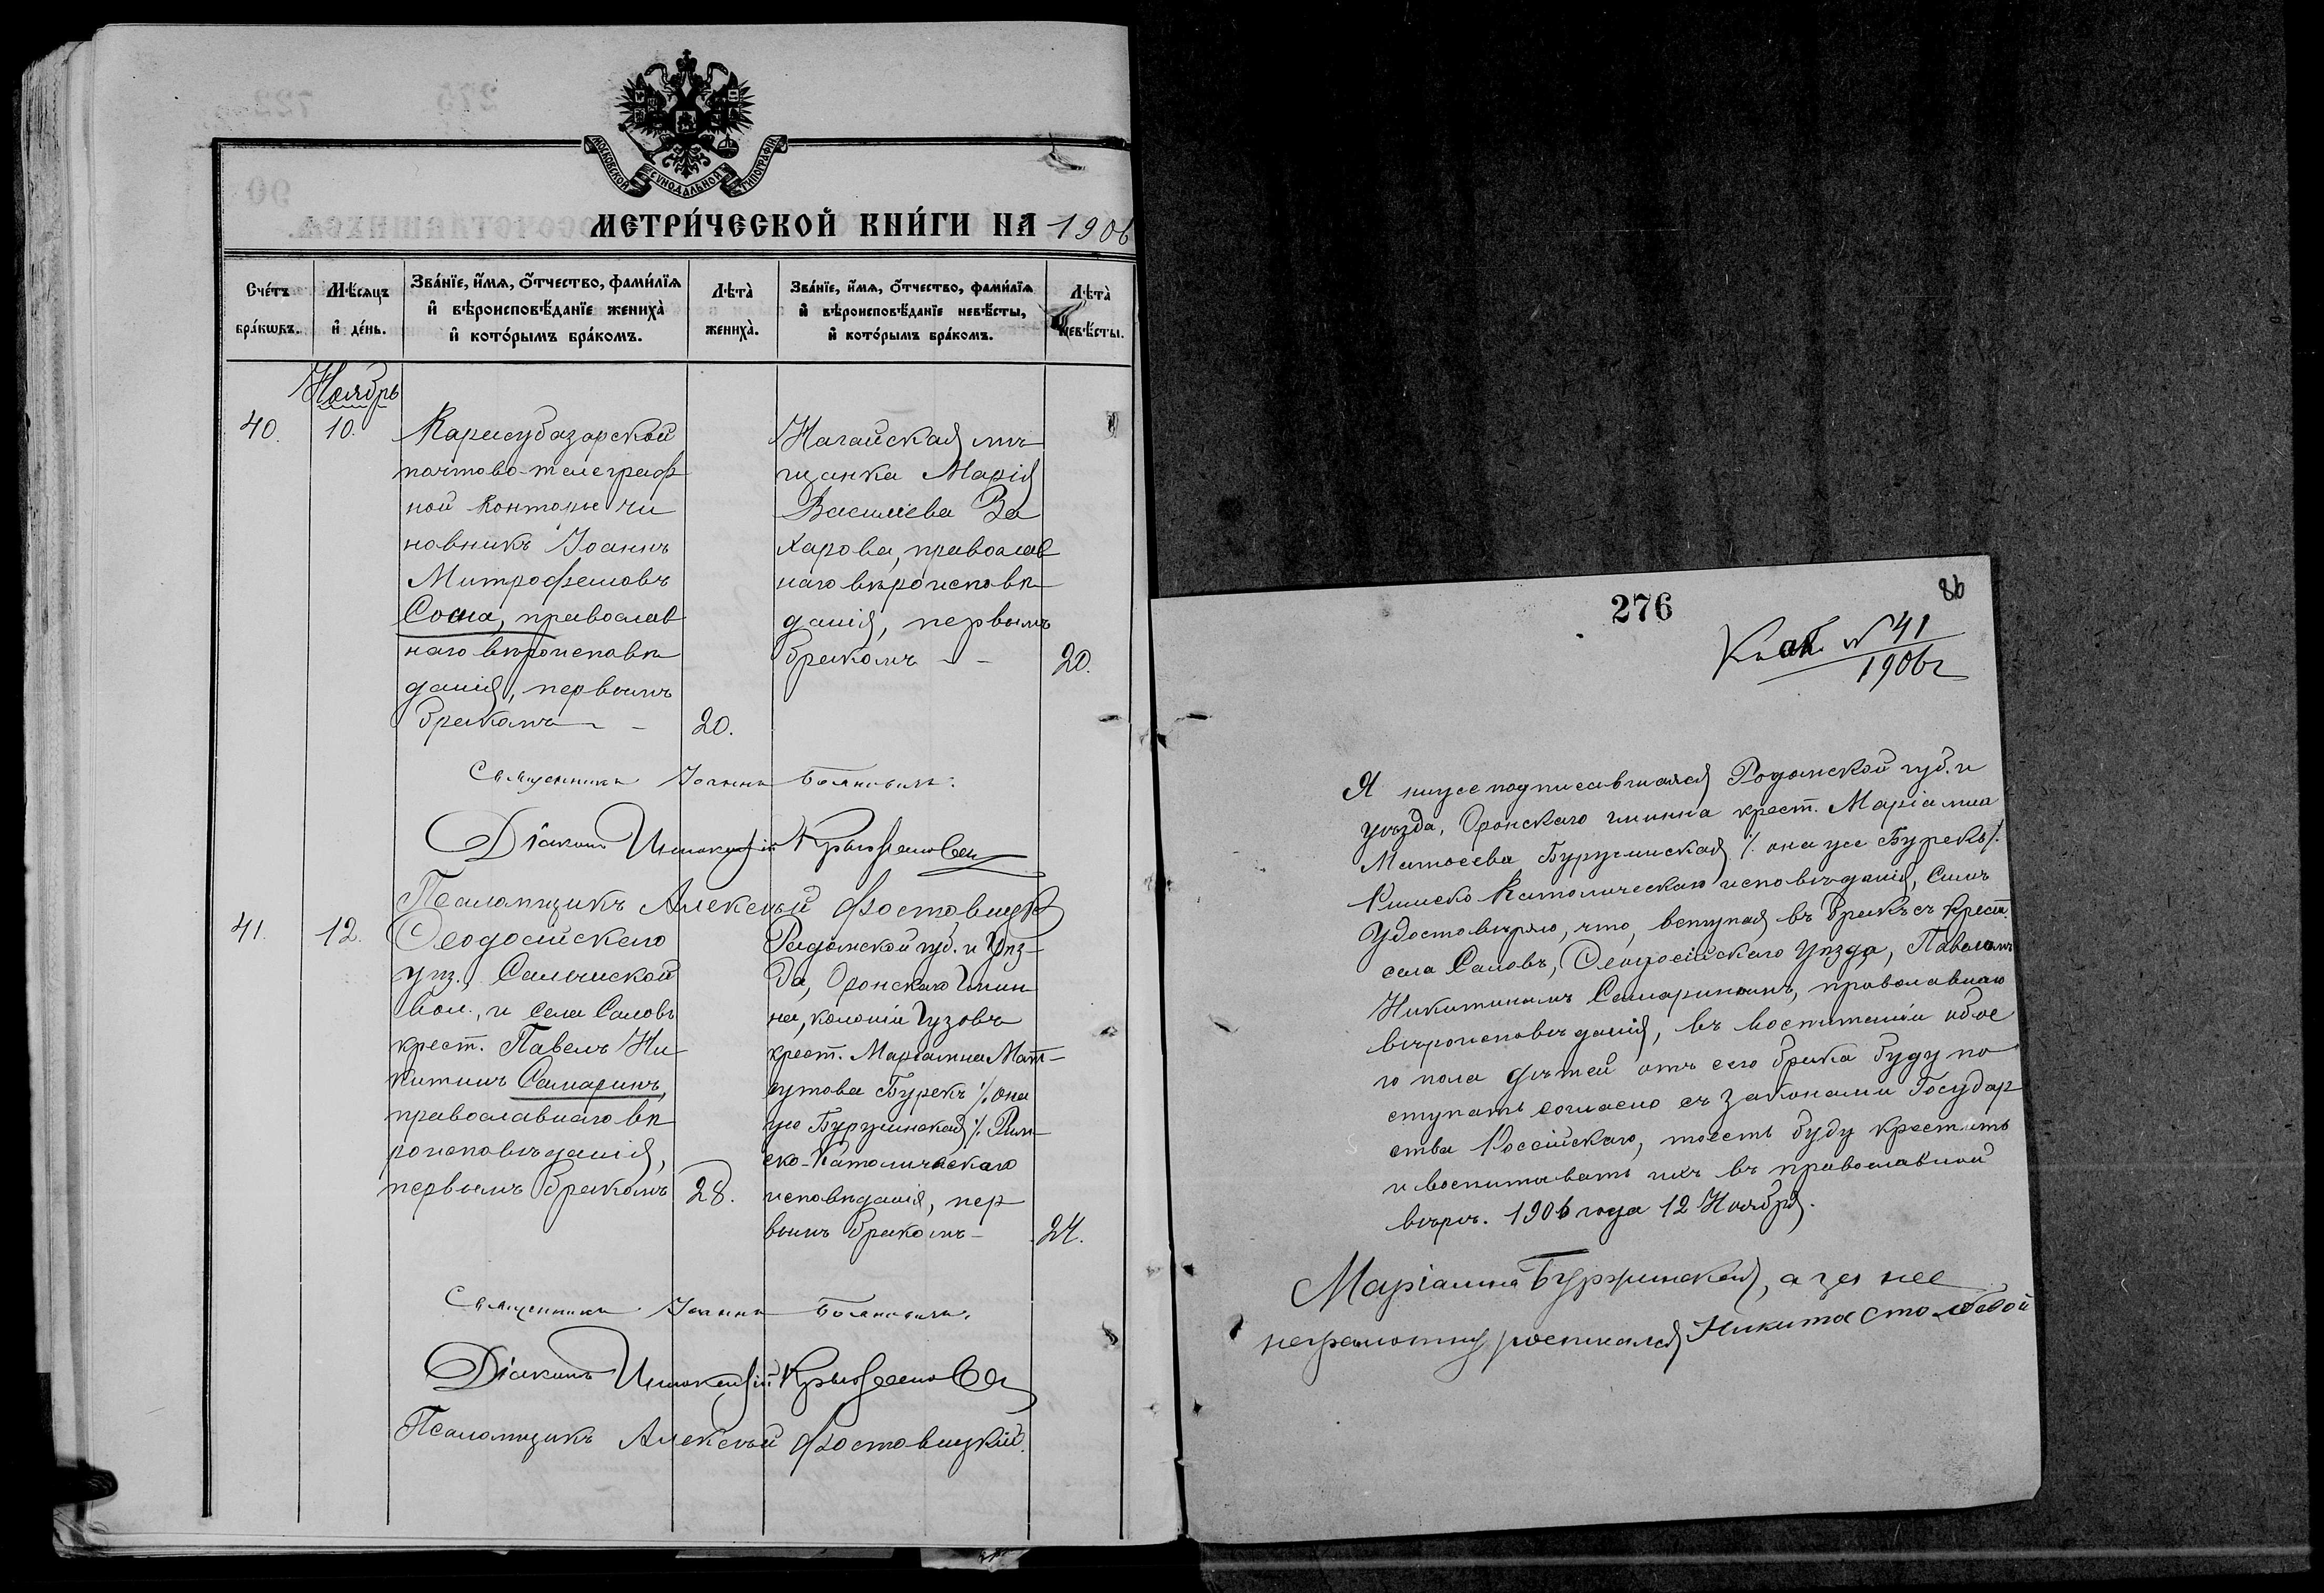 МОСКОВСКОЙ СУНОДАЛЬНОЙ ТИПОГРАФІИ
МЕТРИ́ЧЕСКОЙ КНИ́ГИ НА 1906
Сче́тъ бра́кωвъ.
Мѣ́сяцъ и҆ де́нь.
Зва́нїе, и҆́мѧ, ѻ҆́тчество, фами́лїѧ и҆ вѣроисповѣ́данїе жениха̀ и҆ кото́рымъ бра́комъ.
Лѣта̀ жениха̀.
Зва́нїе, и҆́мѧ, ѻ҆́тчество, фами́лїѧ и҆ вѣроисповѣ́данїе невѣ́сты, и҆ кото́рымъ бра́комъ.
Лѣта̀ невѣ́сты.
Ноябрь
40.
10.
Карасубазарской
почтово-телеграф
ной конторы чи
новникъ Іоаннъ
Митрофановъ
Сона, православ
наго вѣроисповѣ
данія, первымъ
бракомъ - -
20.
Нагайская мѣ
щанка Марія
Васильева За
харова, православ
наго вѣроисповѣ
данія, первымъ
бракомъ - -
20.
Священникъ Іоаннъ
Діаконъ Иннокентій
Псаломщикъ Алексѣй Фостовицкій
41.
12.
Ѳеодосійскаго
уѣз., Салынской
вол., и села Саловъ
крест. Павелъ Ни
китинъ Самаринъ,
православнаго вѣ
роисповѣданія,
первымъ бракомъ
28.
Радомской губ. и Уѣз-
да, Оронскаго Гмин
на, колоніи Гузовъ
крест. Маріанна Мат-
ѳутова Бурекъ /. она
же Буржинская /. Рим-
ско-Католическаго
исповѣданія, пер
вымъ бракомъ -
24.
Священникъ Іоаннъ
Діаконъ Иннокентій
Псаломщикъ Алексѣй Фостовицкій.
276
86
Къ ак. № 41
1906 г
Я нижеподписавшаяся Радомской губ. и
уѣзда, Оронскаго гминна крест. Маріанна
Матѳеева Буружинская /. она же Бурекъ /.
Римско Католическаго исповѣданія, симъ
удостовѣряю, что, вступая въ бракъ съ крест.
села Саловъ, Ѳеодосійскаго Уѣзда, Павломъ
Никитинымъ Самаринымъ, православнаго
вѣроисповѣданія, въ воспитаніи обое
го пола дѣтей отъ сего брака буду по
ступать согласно съ законами Государ
ства Россійскаго, тоесть буду крестить
и воспитывать ихъ въ православной
вѣрѣ. 1906 года 12 Ноября.
Маріанна Буржинская, а за нее
неграмотную росписался Никита Столбовой